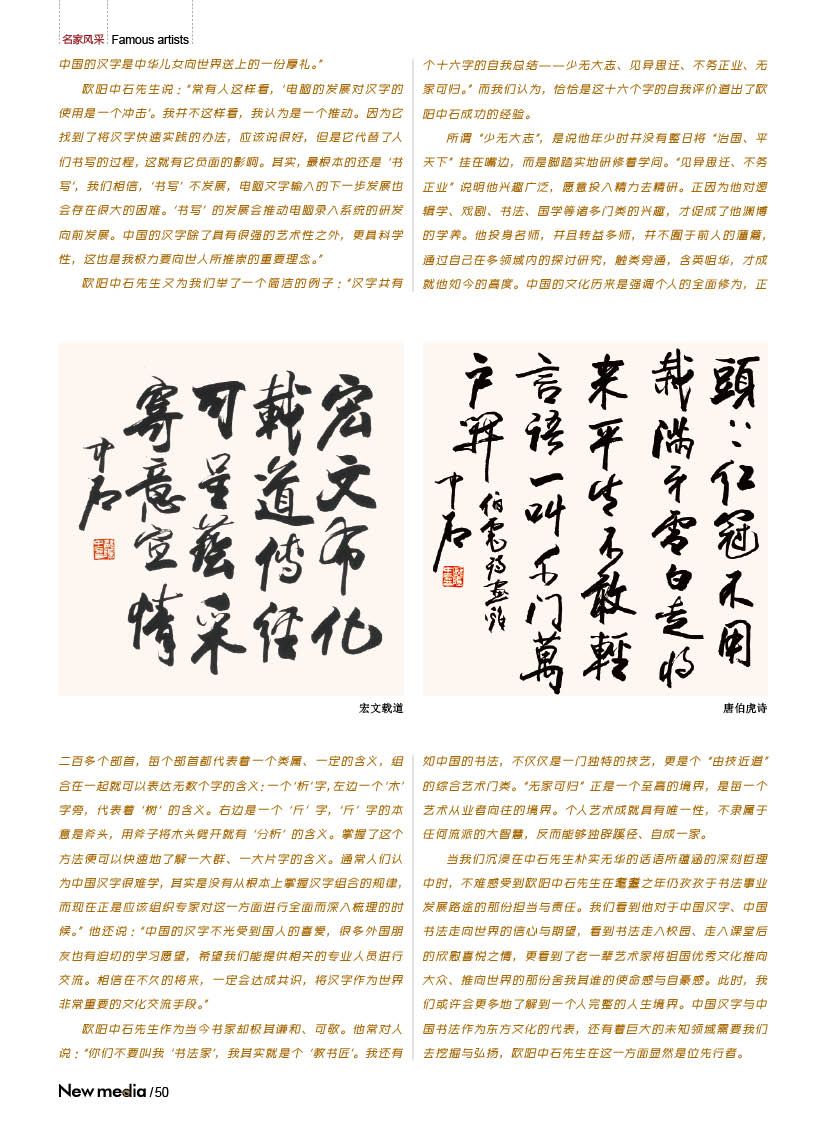 名家风采 Famous artists
中国的汉字是中华儿女向世界送上的一份厚礼。”
欧阳中石先生说：“常有人这样看，‘电脑的发展对汉字的
使用是一个冲击’。我并不这样看，我认为是一个推动。因为它
找到了将汉字快速实践的办法，应该说很好，但是它代替了人
们书写的过程，这就有它负面的影响。其实，最根本的还是‘书
写’，我们相信，‘书写’不发展，电脑文字输入的下一步发展也
会存在很大的困难。‘书写’的发展会推动电脑录入系统的研发
向前发展。中国的汉字除了具有很强的艺术性之外，更具科学
性，这也是我极力要向世人所推崇的重要理念。”
欧阳中石先生又为我们举了一个简洁的例子：“汉字共有
宏文布化
載道傳經
可呈藝采
寄意宣情
中石
宏文载道
二百多个部首，每个部首都代表着一个类属、一定的含义，组
合在一起就可以表达无数个字的含义：一个‘析’字，左边一个‘木’
字旁，代表着‘树’的含义。右边是一个‘斤’字，‘斤’字的本
意是斧头，用斧子将木头劈开就有‘分析’的含义。掌握了这个
方法便可以快速地了解一大群、一大片字的含义。通常人们认
为中国汉字很难学，其实是没有从根本上掌握汉字组合的规律，
而现在正是应该组织专家对这一方面进行全面而深入梳理的时
候。”他还说：“中国的汉字不光受到国人的喜爱，很多外国朋
友也有迫切的学习愿望，希望我们能提供相关的专业人员进行
交流。相信在不久的将来，一定会达成共识，将汉字作为世界
非常重要的文化交流手段。”
欧阳中石先生作为当今书家却极其谦和、可敬。他常对人
说：“你们不要叫我‘书法家’，我其实就是个‘教书匠’。我还有
个十六字的自我总结——少无大志、见异思迁、不务正业、无
家可归。”而我们认为，恰恰是这十六个字的自我评价道出了欧
阳中石成功的经验。
所谓“少无大志”，是说他年少时并没有整日将“治国、平
天下”挂在嘴边，而是脚踏实地研修着学问。“见异思迁、不务
正业”说明他兴趣广泛，愿意投入精力去精研。正因为他对逻
辑学、戏剧、书法、国学等诸多门类的兴趣，才促成了他渊博
的学养。他投身名师，并且转益多师，并不囿于前人的藩篱，
通过自己在多领域内的探讨研究，触类旁通，含英咀华，才成
就他如今的高度。中国的文化历来是强调个人的全面修为，正
頭上红冠不用
裁滿身雪白走將
来平生不敢輕
言語一叫千门萬
户開 伯虎詩畫雞
中石
唐伯虎诗
如中国的书法，不仅仅是一门独特的技艺，更是个“由技近道”
的综合艺术门类。“无家可归”正是一个至高的境界，是每一个
艺术从业者向往的境界。个人艺术成就具有唯一性，不隶属于
任何流派的大智慧，反而能够独辟蹊径、自成一家。
当我们沉浸在中石先生朴实无华的话语所蕴涵的深刻哲理
中时，不难感受到欧阳中石先生在耄耋之年仍孜孜于书法事业
发展路途的那份担当与责任。我们看到他对于中国汉字、中国
书法走向世界的信心与期望，看到书法走入校园、走入课堂后
的欣慰喜悦之情，更看到了老一辈艺术家将祖国优秀文化推向
大众、推向世界的那份舍我其谁的使命感与自豪感。此时，我
们或许会更多地了解到一个人完整的人生境界。中国汉字与中
国书法作为东方文化的代表，还有着巨大的未知领域需要我们
去挖掘与弘扬，欧阳中石先生在这一方面显然是位先行者。
New media /50